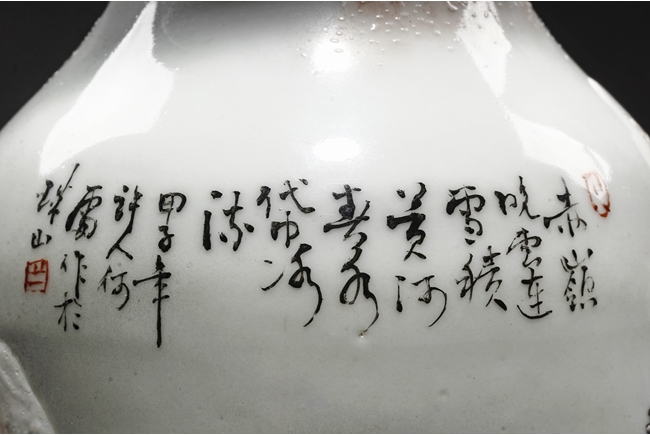 赤嶺
晚雲連
雪積
黃河
春水
帶冰
流
甲子年
許人何
作於
珠山